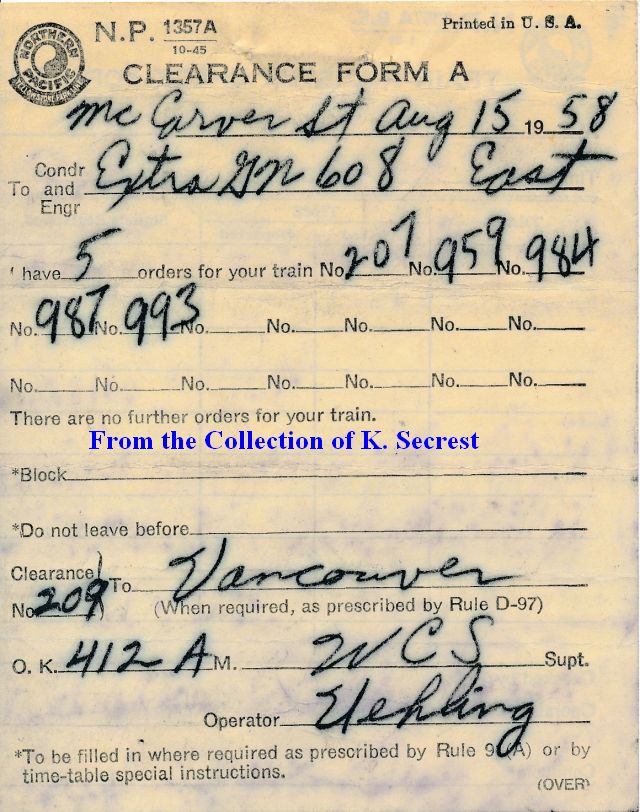 NORTHERN PACIFIC
N.P. 1357A
10-45
Printed in U. S. A.
CLEARANCE FORM A
Mc Carver St Aug 15 1958
Condr
To and Extra GN 608 East
Engr
I have 5 orders for your train No. 207 No. 959 No. 984
No. 987 No. 993 No. No. No. No. No.
No. No. No. No. No. No. No.
There are no further orders for your train.
From the Collection of K. Secrest
*Block
*Do not leave before
Clearance) To Vancouver
No 209) (When required, as prescribed by Rule D-97)
O. K. 412 A M. WCS Supt.
Operator Uehling
*To be filled in where required as prescribed by Rule 91(A) or by
time-table special instructions.
(OVER)